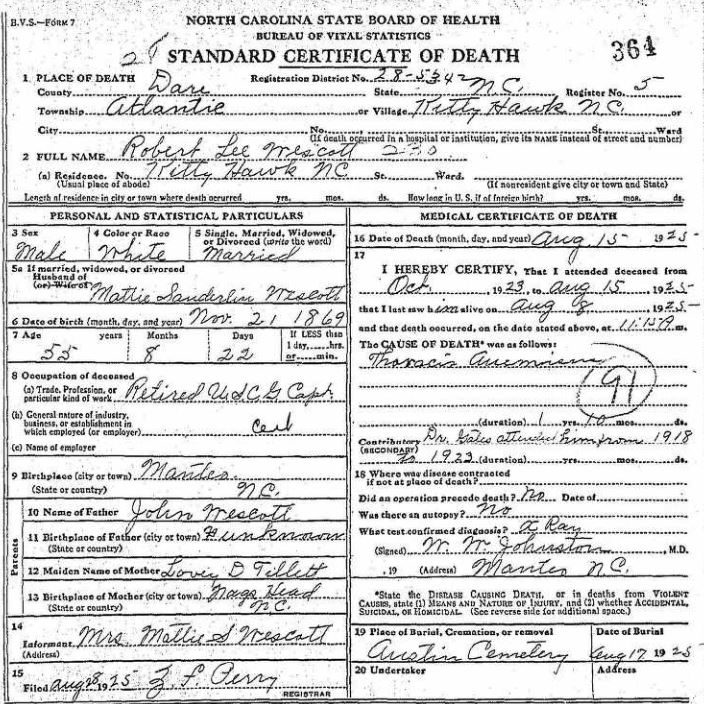 B.V.S.—FORM 7
NORTH CAROLINA STATE BOARD OF HEALTH
BUREAU OF VITAL STATISTICS
STANDARD CERTIFICATE OF DEATH
364
1 PLACE OF DEATH Registration District No. 28-5342
County Dare State N.C. Register No. 5
Township Atlantic or Village Kitty Hawk N.C. or
City No. St. Ward
(If death occurred in a hospital or institution, give its NAME instead of street and number)
2 FULL NAME Robert Lee Wescott 230
(a) Residence. No. Kitty Hawk NC St. Ward.
(Usual place of abode) (If nonresident give city or town and State)
Length of residence in city or town where death occurred yrs. mos. ds. How long in U. S. if of foreign birth? yrs. mos. ds.
PERSONAL AND STATISTICAL PARTICULARS
3 Sex 4 Color or Race 5 Single, Married, Widowed, or Divorced (write the word)
Male White Married
5a If married, widowed, or divorced
Husband of
(or) Wife of Mattie Sanderlin Wescott
6 Date of birth (month, day, and year) Nov. 21 1869
7 Age years Months Days If LESS than 1 day,....hrs. or.....min.
55 8 22
8 Occupation of deceased
(a) Trade, Profession, or particular kind of work Retired U S C G Capt.
(b) General nature of industry, business, or establishment in which employed (or employer)
(c) Name of employer
9 Birthplace (city or town) Manteo
(State or country) N.C.
Parents
10 Name of Father John Wescott
11 Birthplace of Father (city or town) unknown
(State or country)
12 Maiden Name of Mother Lovey D Tillett
13 Birthplace of Mother (city or town) Nags Head
(State or country) N.C.
14
Informant Mrs Mattie S Wescott
(Address)
15
Filed Aug 28 1925 Z. F. Perry
REGISTRAR
MEDICAL CERTIFICATE OF DEATH
16 Date of Death (month, day, and year) Aug 15 1925
17
I HEREBY CERTIFY, That I attended deceased from
Oct. , 1923, to Aug 15, 1925
that I last saw him alive on Aug 8, 1925
and that death occurred, on the date stated above, at 11:15 m.
The CAUSE OF DEATH* was as follows:
Thoracic Aneurism
91
(duration) 1 yrs. 10 mos. ds.
Contributory Dr. Gates attended him from 1918
(SECONDARY)
to 1923 (duration) yrs. mos. ds.
18 Where was disease contracted
if not at place of death?
Did an operation precede death? No Date of
Was there an autopsy? No
What test confirmed diagnosis? X Ray
(Signed) W. W. Johnston M.D.
, 19 (Address) Manteo N.C.
*State the DISEASE CAUSING DEATH, or in deaths from VIOLENT
CAUSES, state (1) MEANS AND NATURE OF INJURY, and (2) whether ACCIDENTAL,
SUICIDAL, OR HOMICIDAL. (See reverse side for additional space.)
19 Place of Burial, Cremation, or removal Date of Burial
Austin Cemetery Aug 17 1925
20 Undertaker Address